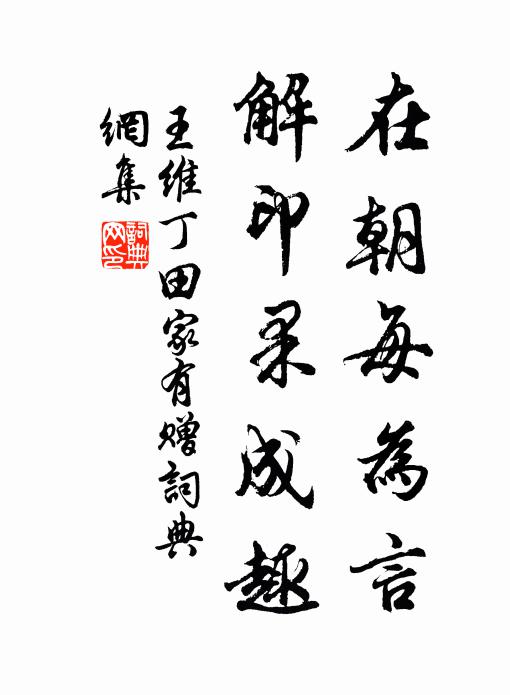 在朝每為言
解印果成趣
王維丁田家有贈詞典
網集
詞典
网印